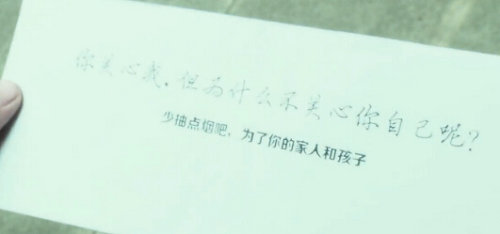 你关心我，但为什么不关心你自己呢？
少抽点烟吧，为了你的家人和孩子